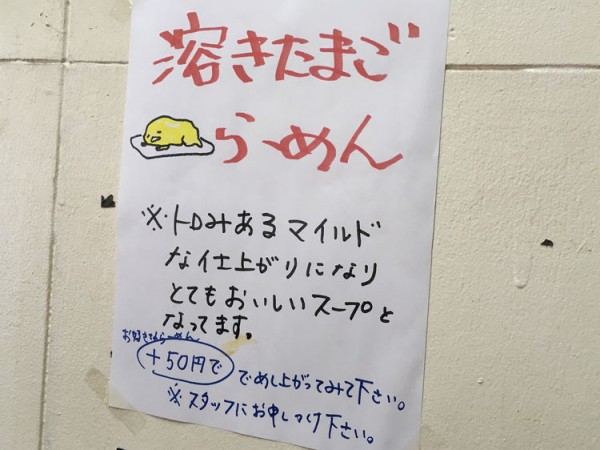 溶きたまご
らーめん
※トロみあるマイルド
な仕上がりになり
とてもおいしいスープと
なってます。
お好きならーめん
+50円で
でめし上がってみて下さい。
※スタッフにお申しつけ下さい。